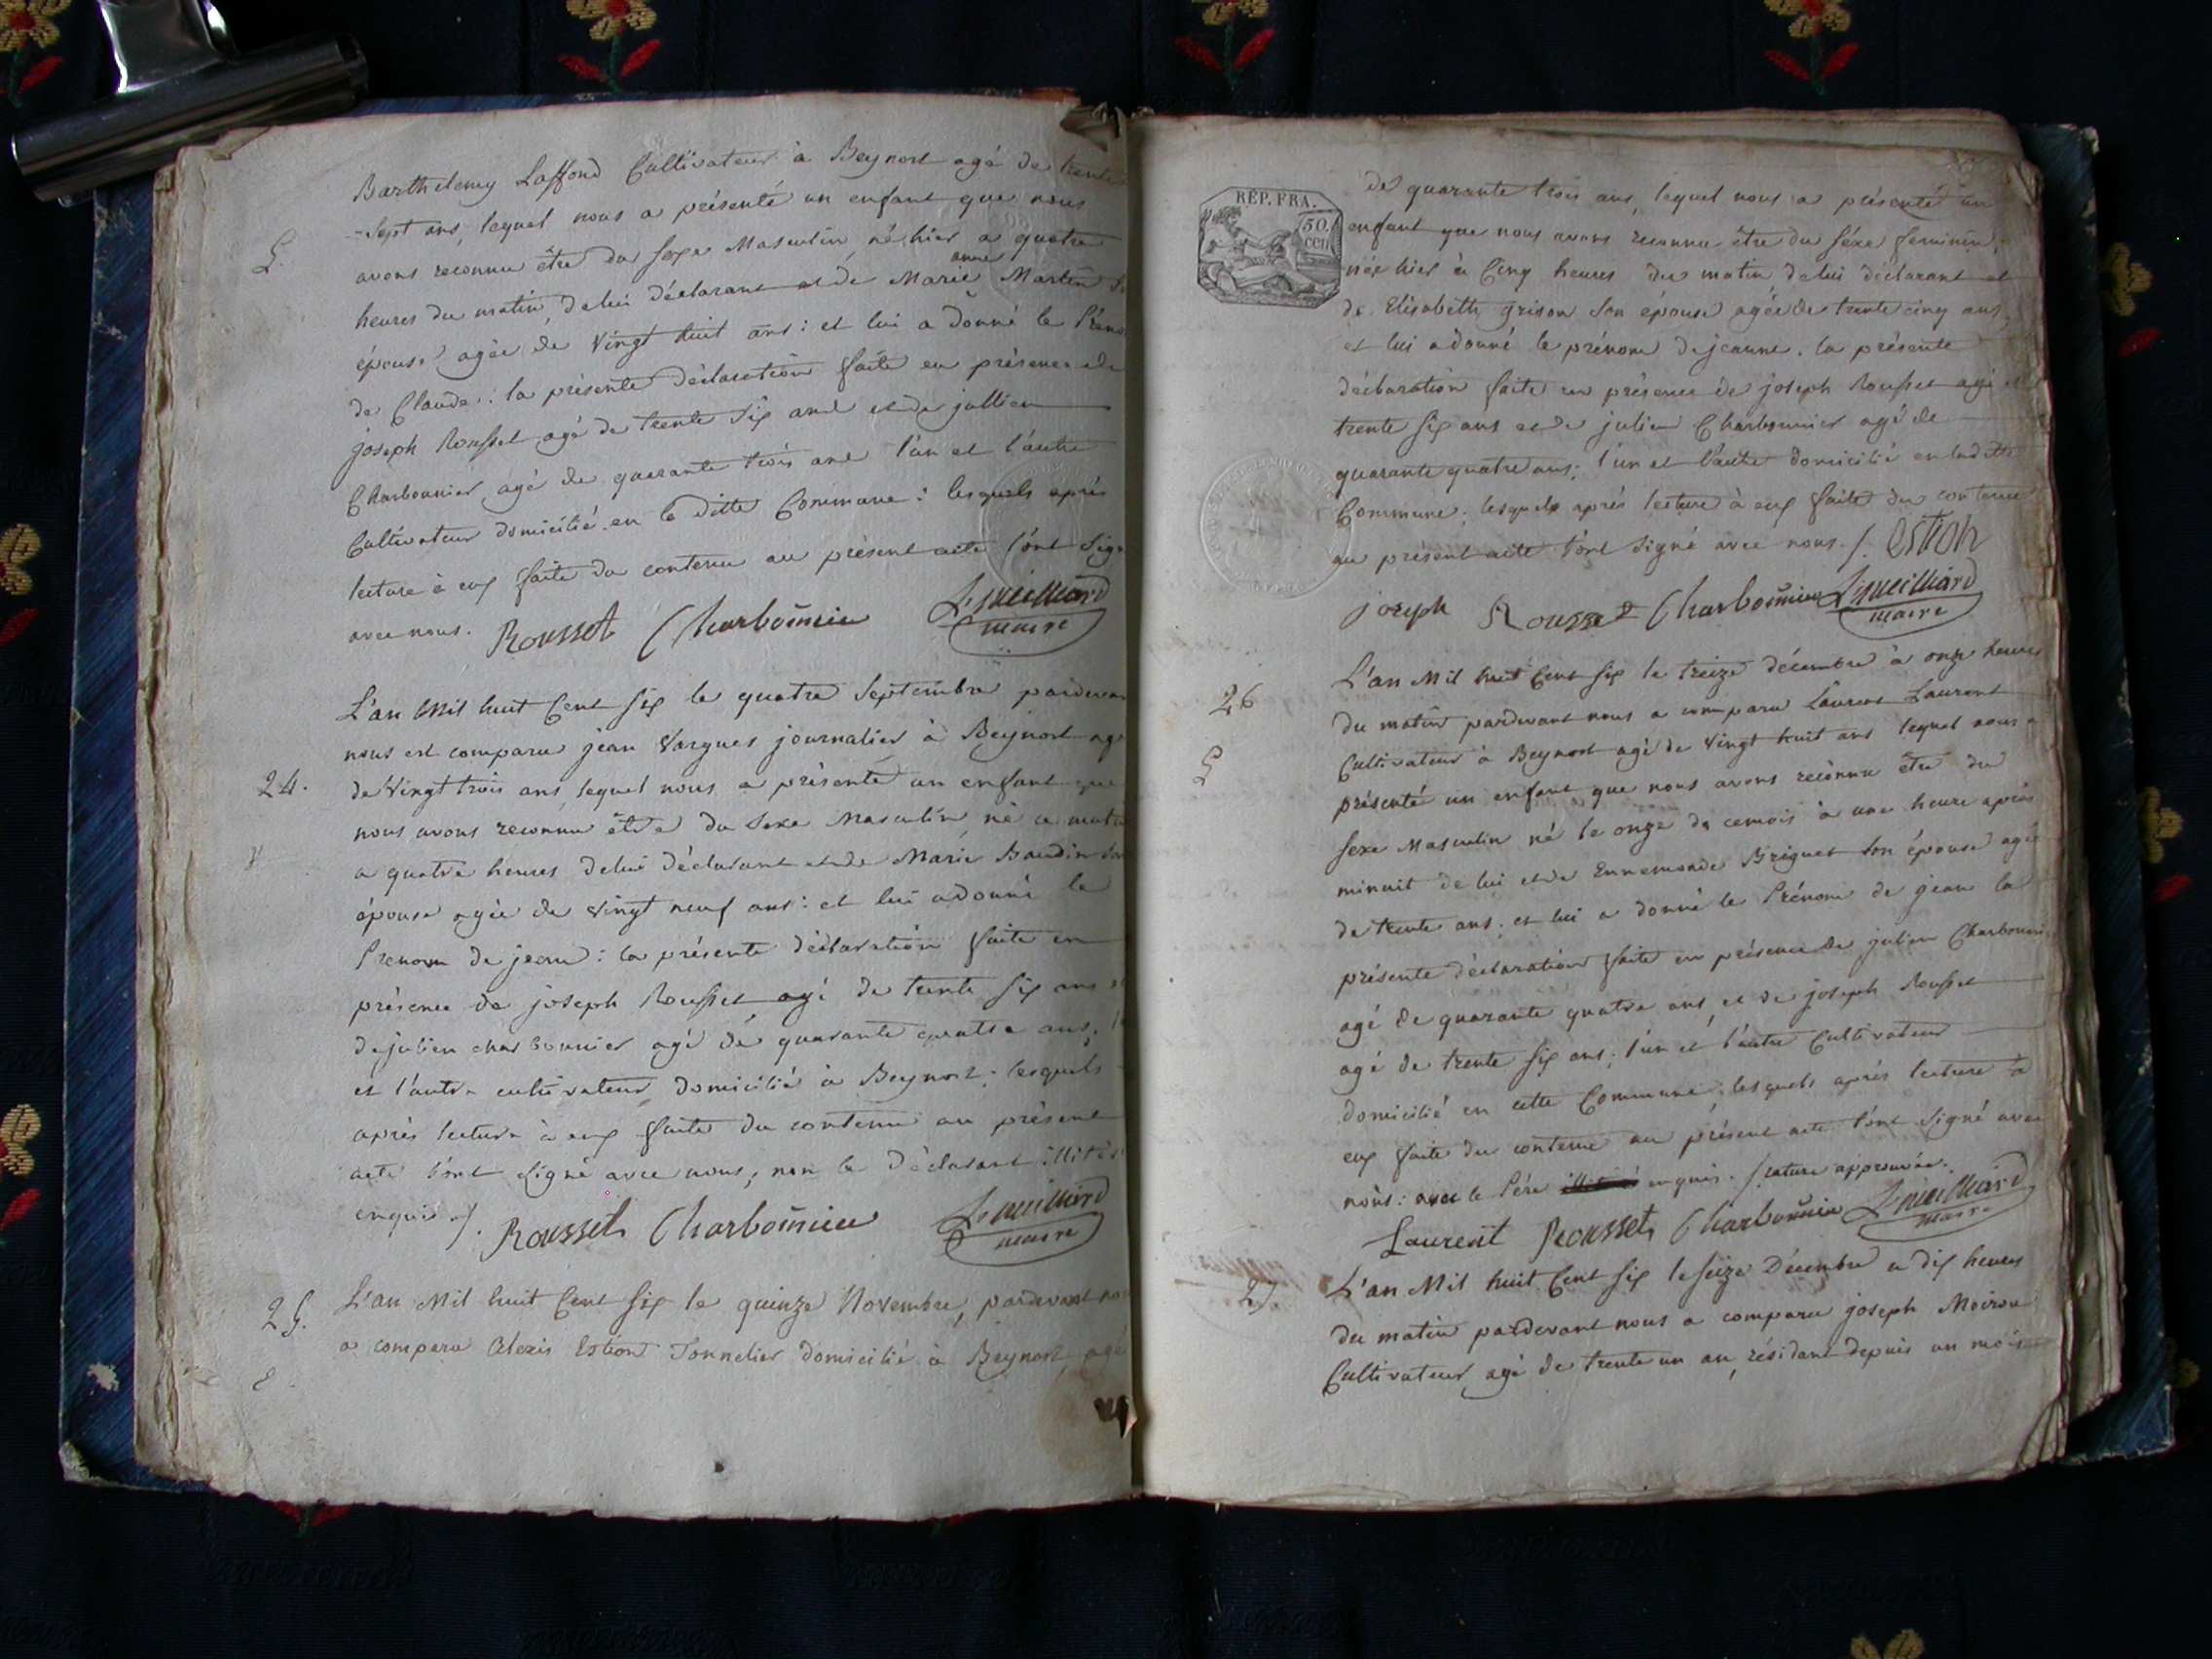 Barthelemy Laffond Cultivateur à Beynost agé de trente
-Sept ans, lequel nous a présenté un enfant que nous
L.
avons reconnu être du sexe Masculin, né hier a quatre
anne
heures du matin, de lui déclarant et de Marie Martin
épouse agée de Vingt huit ans : et lui a donné le Préno
de Claude : la présente déclaration faite en présence de
joseph Rousset agé de trente Six ans et de jullien
Charbonnier agé de quarante trois ans l'un et l'autre
Cultivateur domicilié en la ditte Commune : lesquels après
lecture à eux faite du contenu au présent acte l'ont Sign
avec nous. Rousset Charbonnier
maire
L'an Mil huit Cent Six le quatre Septembre pardevan
nous est comparu jean Vargues journalier à Beynost ag
24.
de Vingt trois ans, lequel nous a présenté un enfant que
nous avons reconnu être du Sexe Masculin, né ce matin
a quatre heures de lui déclarant et de Marie Baudin son
épouse agée de vingt neuf ans : et lui a donné le
Prenom de jean : la présente déclaration faite en
présence de joseph Rousset agé de trente Six ans et
de julien charbonnier agé de quarante quatre ans, l
et l'autre cultivateur domicilié à Beynost ; lesquels
après lecture à eux faite du contenu au présent
acte l'ont Signé avec nous, non le Déclarant illitéré
enquis ./. Rousset Charbonnier
maire
25.
L'an Mil huit Cent Six le quinze Novembre, pardevant no
a comparu Alexis Estion Tonnelier domicilié à Beynost, agé
E.
RÉP. FRA.
50.
cen
de quarante trois ans, lequel nous a présenté un
enfant que nous avons reconnu être du séxe feminin,
née hier à Cinq heures du matin, de lui déclarant et
de Elisabeth grison Son épouse agée de trente cinq ans,
et lui a donné le prénom de jeanne. la présente
déclaration faite en présence de joseph Rousset agé de
trente six ans et de julien Charbonnier agé de
quarante quatre ans ; l'un et l'autre domicilié en laditte
Commune ; lesquels après lecture à eux faite du contenu
au présent acte l'ont Signé avec nous ./. Estion
joseph Rousset Charbonnier
maire
26
L'an Mil huit Cent Six le treize décembre à onze heures
du matin pardevant nous a comparu Laurent Laurent
L
Cultivateur à Beynost agé de Vingt huit ans lequel nous a
présenté un enfant que nous avons reconnu être du
sexe Masculin né le onze de ce mois à une heure après
minuit de lui et de Ennemonde Briguet Son épouse agée
de trente ans ; et lui a donné le Prénom de jean la
présente déclaration faite en présence de julien Charbonni
agé de quarante quatre ans, et de joseph Rousset
agé de trente six ans ; l'un et l'autre Cultivateur
domicilié en cette Commune ; lesquels après lecture à
eux faite du contenu au présent acte l'ont Signé avec
nous : avec le Père enquis. / rature approuvée.
Laurent Rousset Charbonnier
maire
27.
L'an Mil huit Cent Six le Seize Décembre a dix heures
du matin pardevant nous a comparu joseph Moiroux
Cultivateur agé de trente un an, résidant depuis un mois